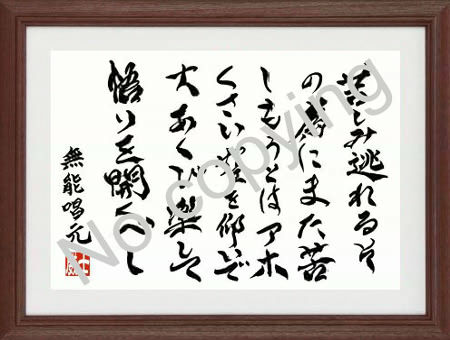 苦しみ逃れるそ
の為にまた苦
しもうとはアホ
くさい空を仰いで
大あくび楽して
悟りを開くべし
無能唱元
No copying